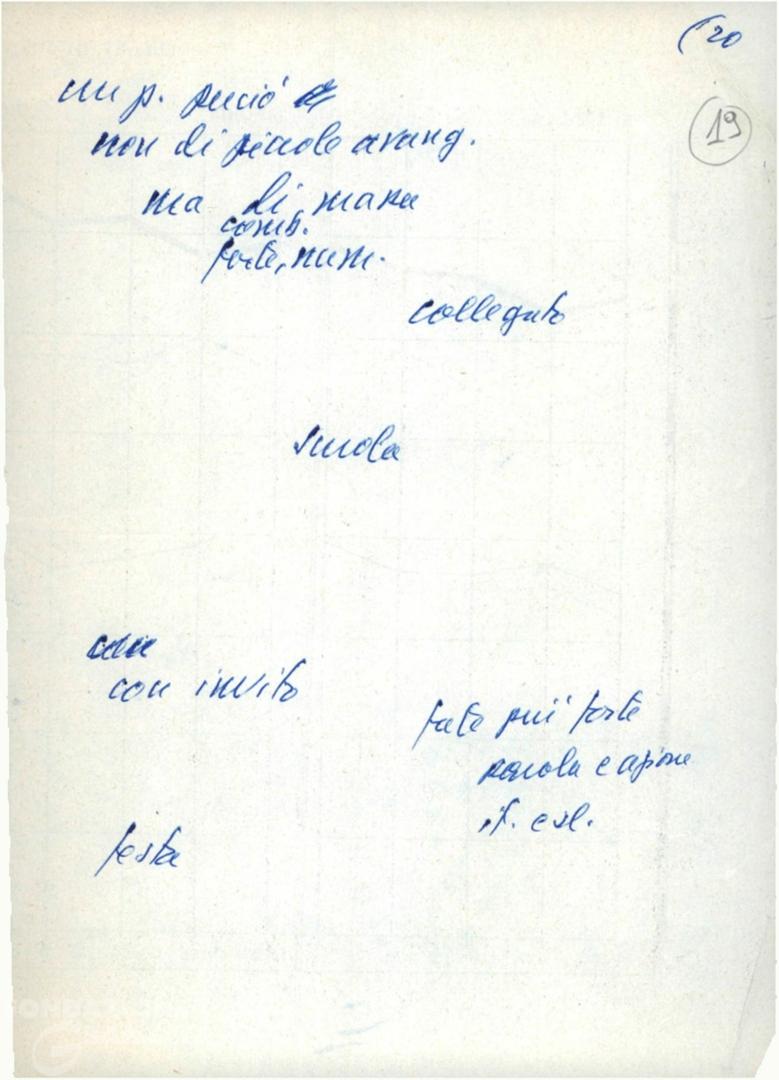 (20
19
un p. perciò
non di piccole avang.
ma di massa
comb.
forte, num.
collegato
scuola
con invito
fate più forte
parola e azione
it. e sl.
festa